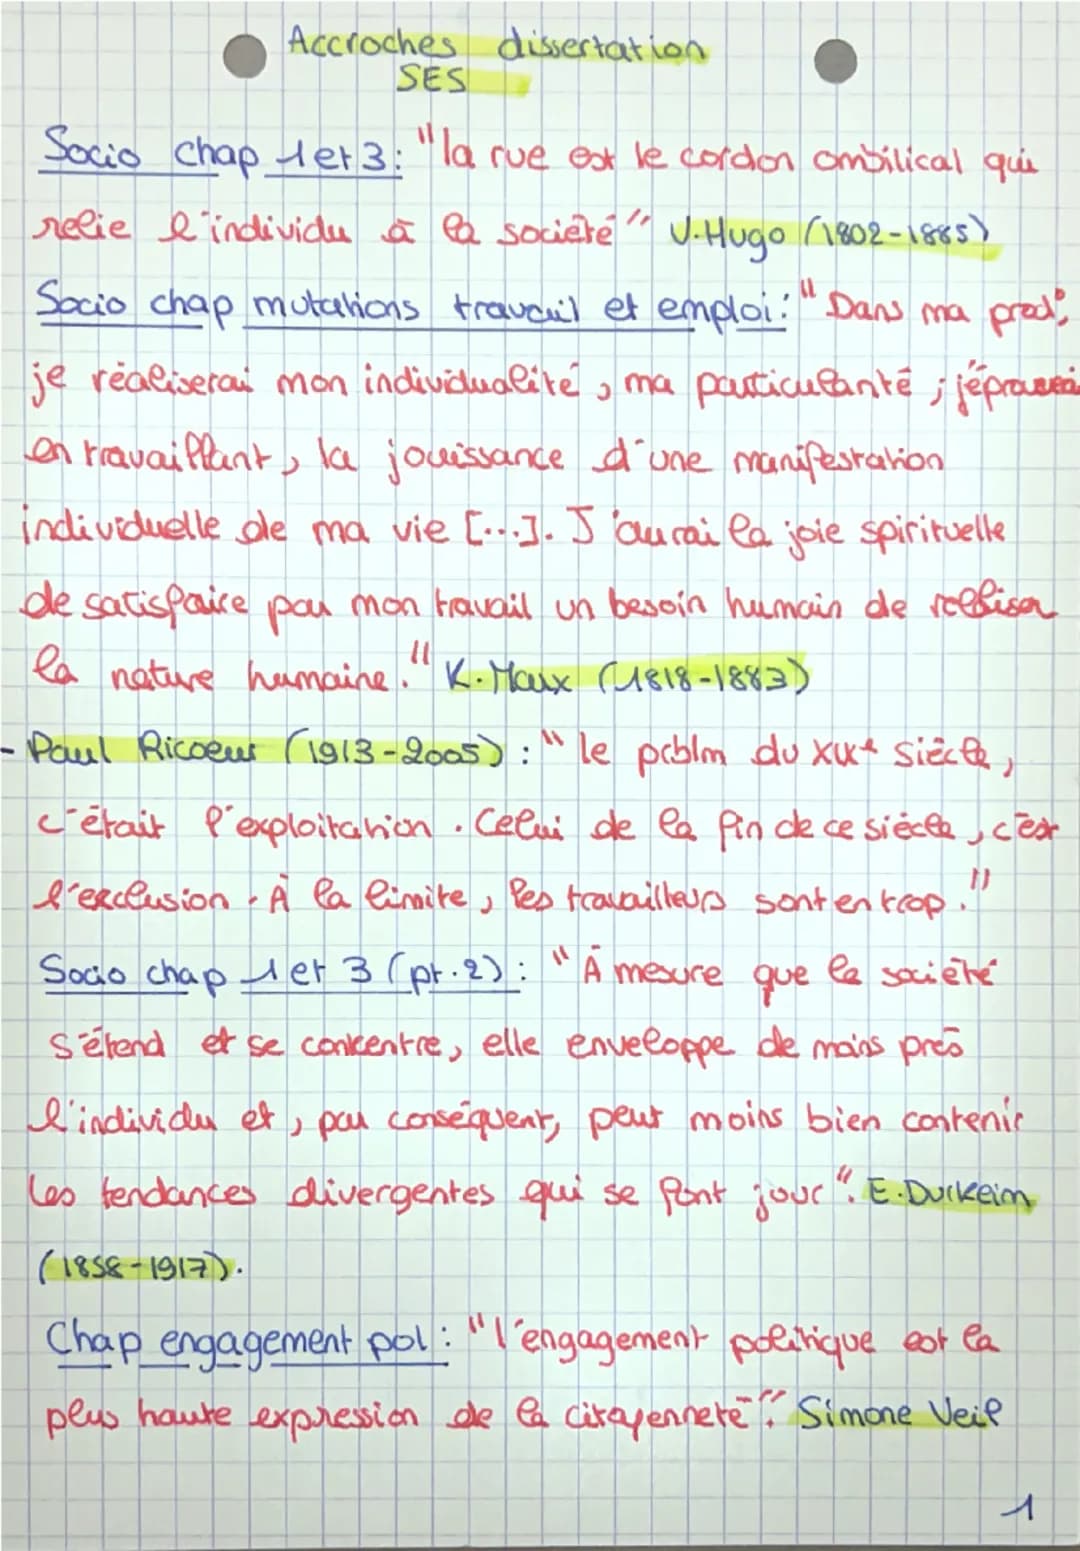 Accroches dissertation
SES
Socio chap 1 et 3 : "la rue est le cordon ombilical qui
relie l'individu à la société" V.Hugo (1802-1885)
Socio chap mutations travail et emploi : "Dans ma prod°,
je réaliserai mon individualité, ma particularité ; j'éprouverai
en travaillant, la jouissance d'une manifestation
individuelle de ma vie [...]. J'aurai la joie spirituelle
de satisfaire par mon travail un besoin humain de réaliser
la nature humaine." K.Marx (1818-1883)
- Paul Ricoeur (1913-2005) : "le prblm du XIXe siècle,
c'était l'exploitation. Celui de la fin de ce siècle, c'est
l'exclusion. À la limite, les travailleurs sont en trop."
Socio chap 1 et 3 (pt.2) : "À mesure que la société
s'étend et se concentre, elle enveloppe de moins près
l'individu et, par conséquent, peut moins bien contenir
les tendances divergentes qui se font jour". E.Durkeim
(1858-1917).
Chap engagement pol : "l'engagement politique est la
plus haute expression de la citoyenneté". Simone Veil
1